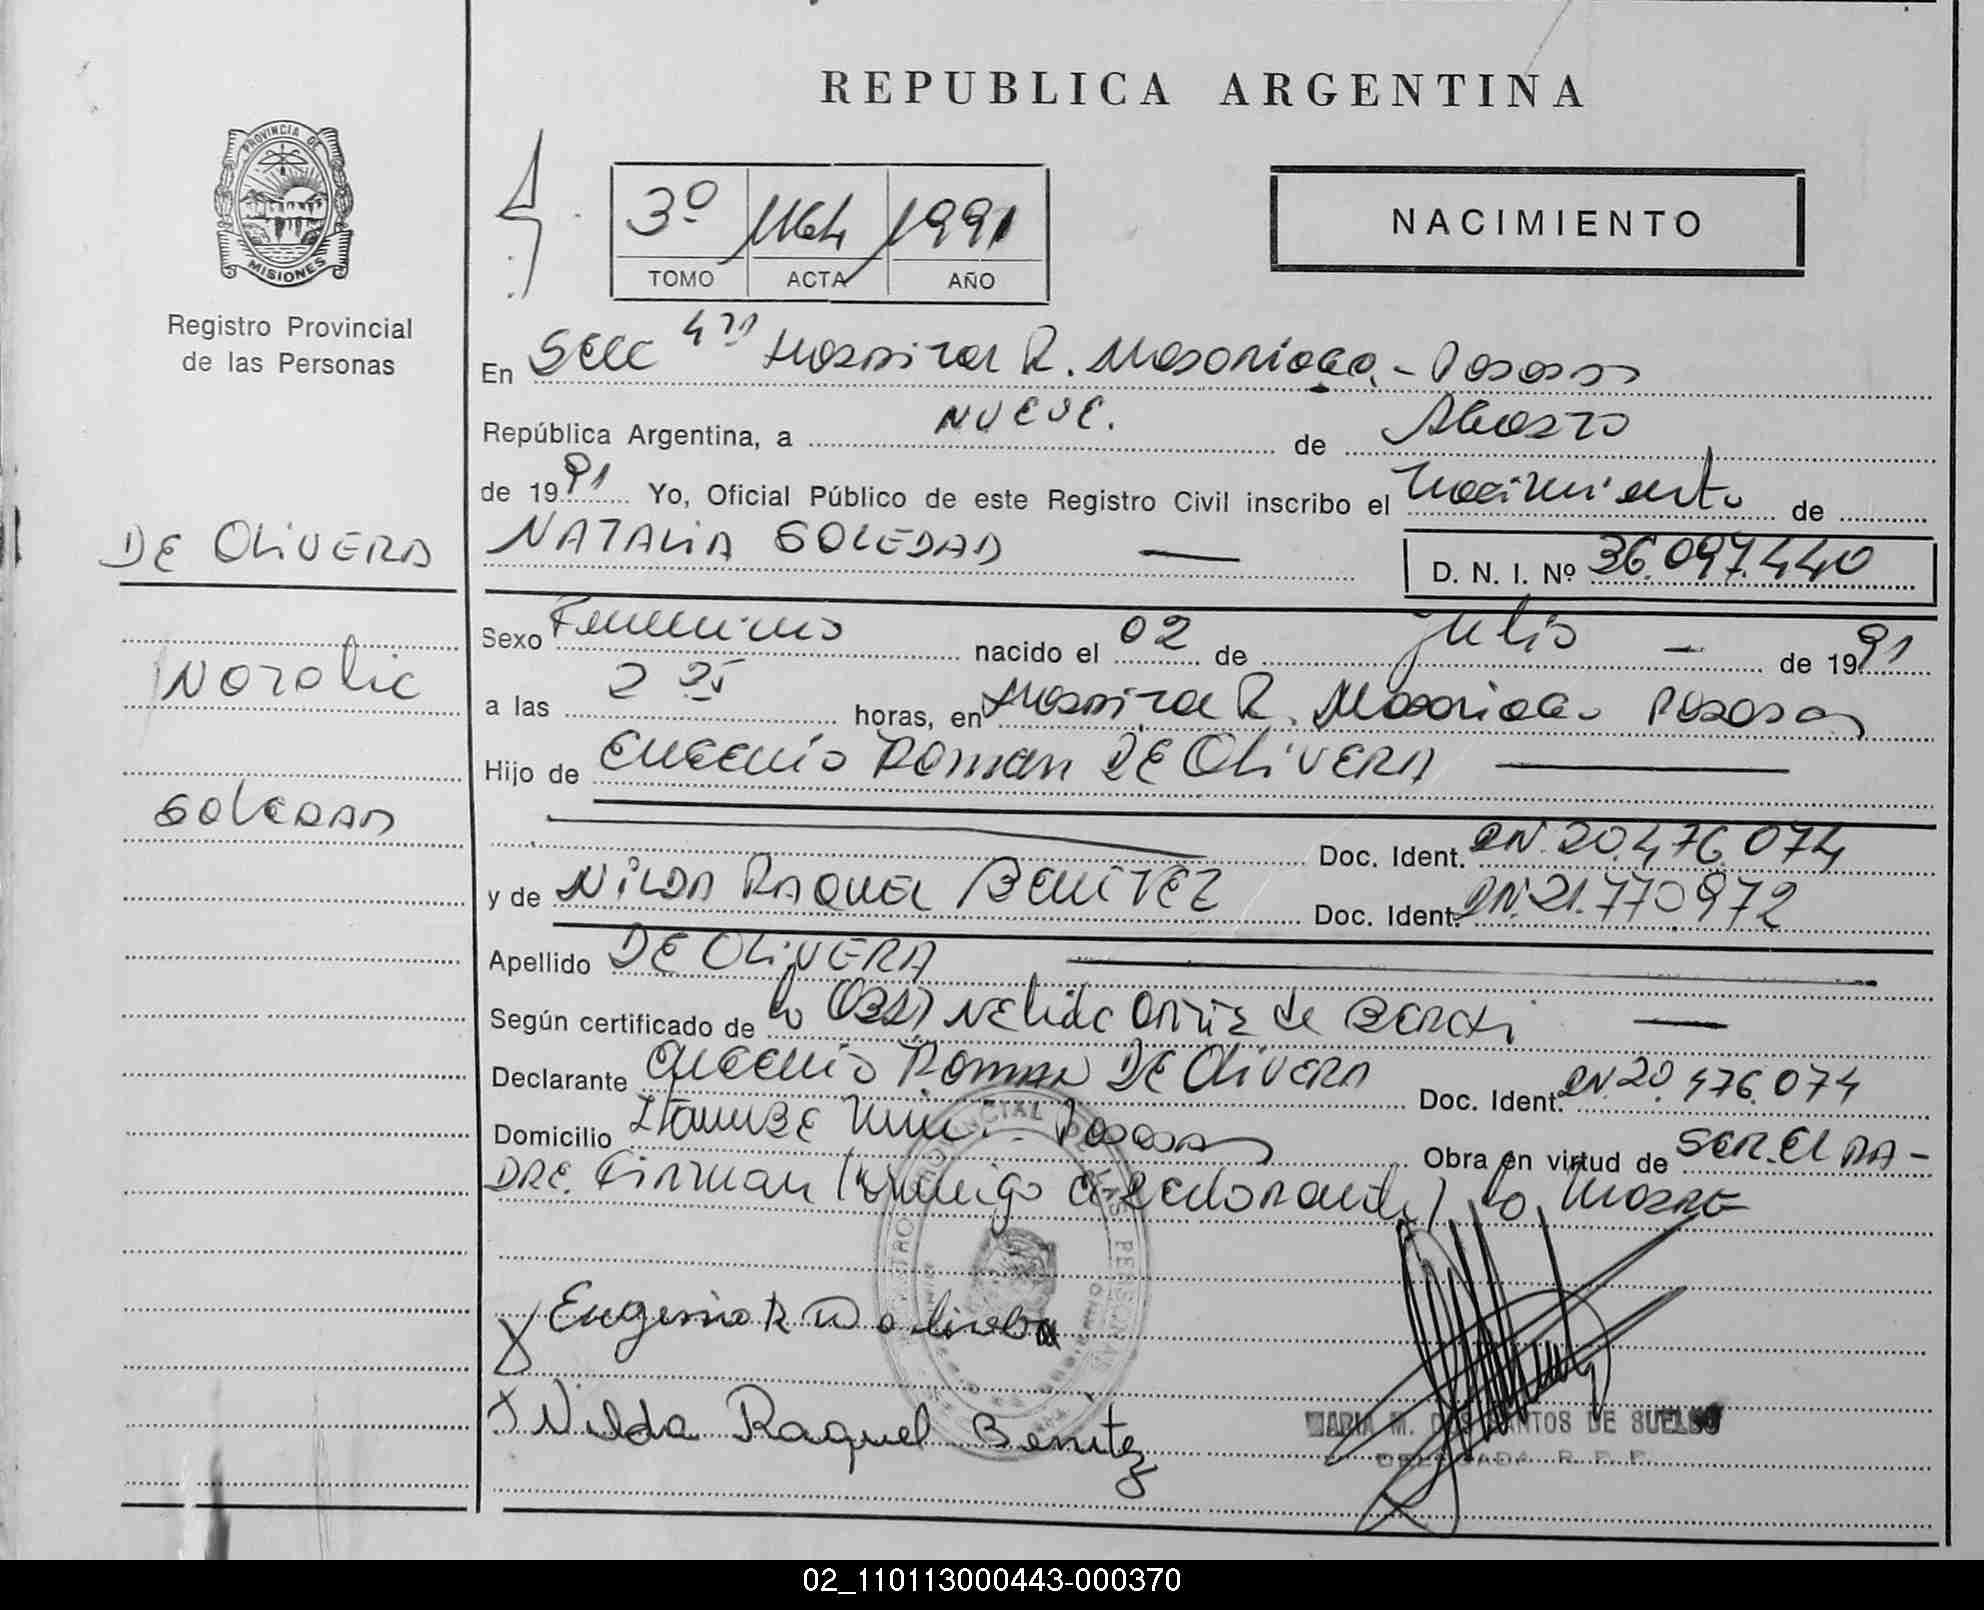 REPUBLICA ARGENTINA
PROVINCIA DE
MISIONES
Registro Provincial
de las Personas
3º 1991
TOMO ACTA AÑO
NACIMIENTO
En Secc 4ta Hospital R. Madariaga - Posadas
República Argentina, a NUEVE. de Agosto
de 1991 Yo, Oficial Público de este Registro Civil inscribo el nacimiento de
DE OLIVERA
NATALIA SOLEDAD
D. N. I. Nº 36.097.440
Sexo Femenino nacido el 02 de Julio de 1991
Natalia
a las 2 horas, en Hospital R. Madariaga Posadas
Hijo de Eugenio Roman DE OLIVERA
SOLEDAD
Doc. Ident. DN. 20.476.074
y de NILDA RAQUEL BENITEZ Doc. Ident. DN. 21.770972
Apellido DE OLIVERA
Según certificado de la Obst Nelida Ortiz de
Declarante Eugenio Roman DE OLIVERA Doc. Ident. DN. 20.476.074
Domicilio Posadas Obra en virtud de SER EL PA-
DRE. Firman conmigo el declarante y la madre
Eugenio R D olivera
Nilda Raquel Benitez
MARIA M. DOS SANTOS DE SUELDO
DELEGADA R. P. P.
02_110113000443-000370